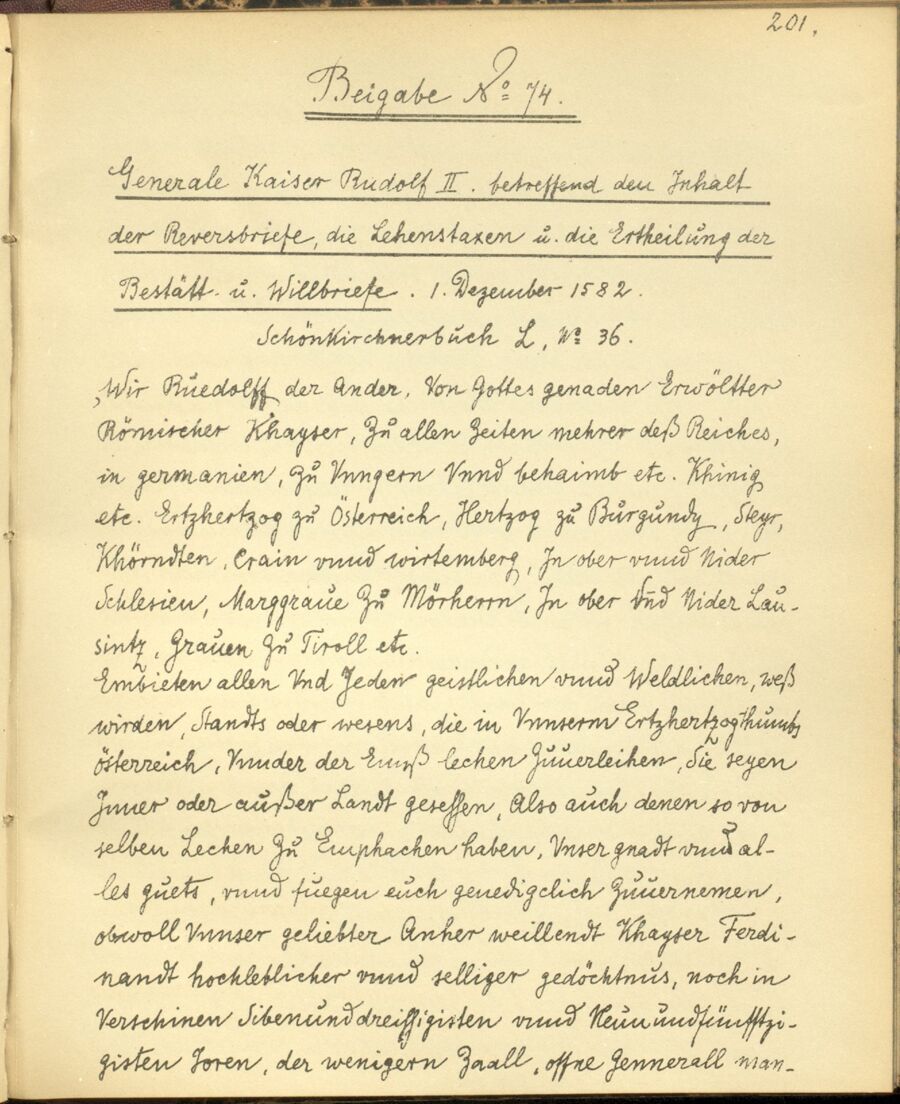 201.
Beigabe No 74.
Generale Kaiser Rudolf II. betreffend den Inhalt
der Reversbriefe, die Lehenstaxen u. die Ertheilung der
Bestätt- u. Willbriefe. 1. Dezember 1582.
Schönkirchnerbuch L, No 36.
„Wir Ruedolff der Ander, Von Gottes genaden Erwöltter
Römischer Khayser, Zu allen Zeiten mehrer deß Reiches,
in germanien, zu Vnngern Vnnd behaimb etc. Khinig
etc. Ertzhertzog zu Österreich, Hertzog zu Burgundy, Steyr,
Khörndten, Crain vnnd wirtemberg, In ober vnnd Nider
Schlesien, Marggraue Zu Mörherrn, In ober Vnd Nider Lau-
sintz, Grauen Zu Tiroll etc.
Embieten allen Vnd Jeden geistlichen vnnd Weldlichen, weß
wirden, Standts oder wesens, die in Vnnserm Ertzhertzogthumbs
Österreich, Vnnder der Ennß lechen Zuuerleihen, Sie seyen
Inner oder außer Landt gesessen, Also auch denen so von
selben Lechen Zu Emphachen haben, Vnser gnadt vnnd al-
les guets, vnnd fuegen euch genedigclich Zuuernemen,
obwoll Vnnser geliebter Anher weillendt Khayser Ferdi-
nandt hochleblicher vnnd selliger gedöchtnus, noch in
Verschinen Sibenunddreissigisten vnnd Neunundfünfftzi-
gisten Joren, der wenigern Zaall, offne Gennerall man-